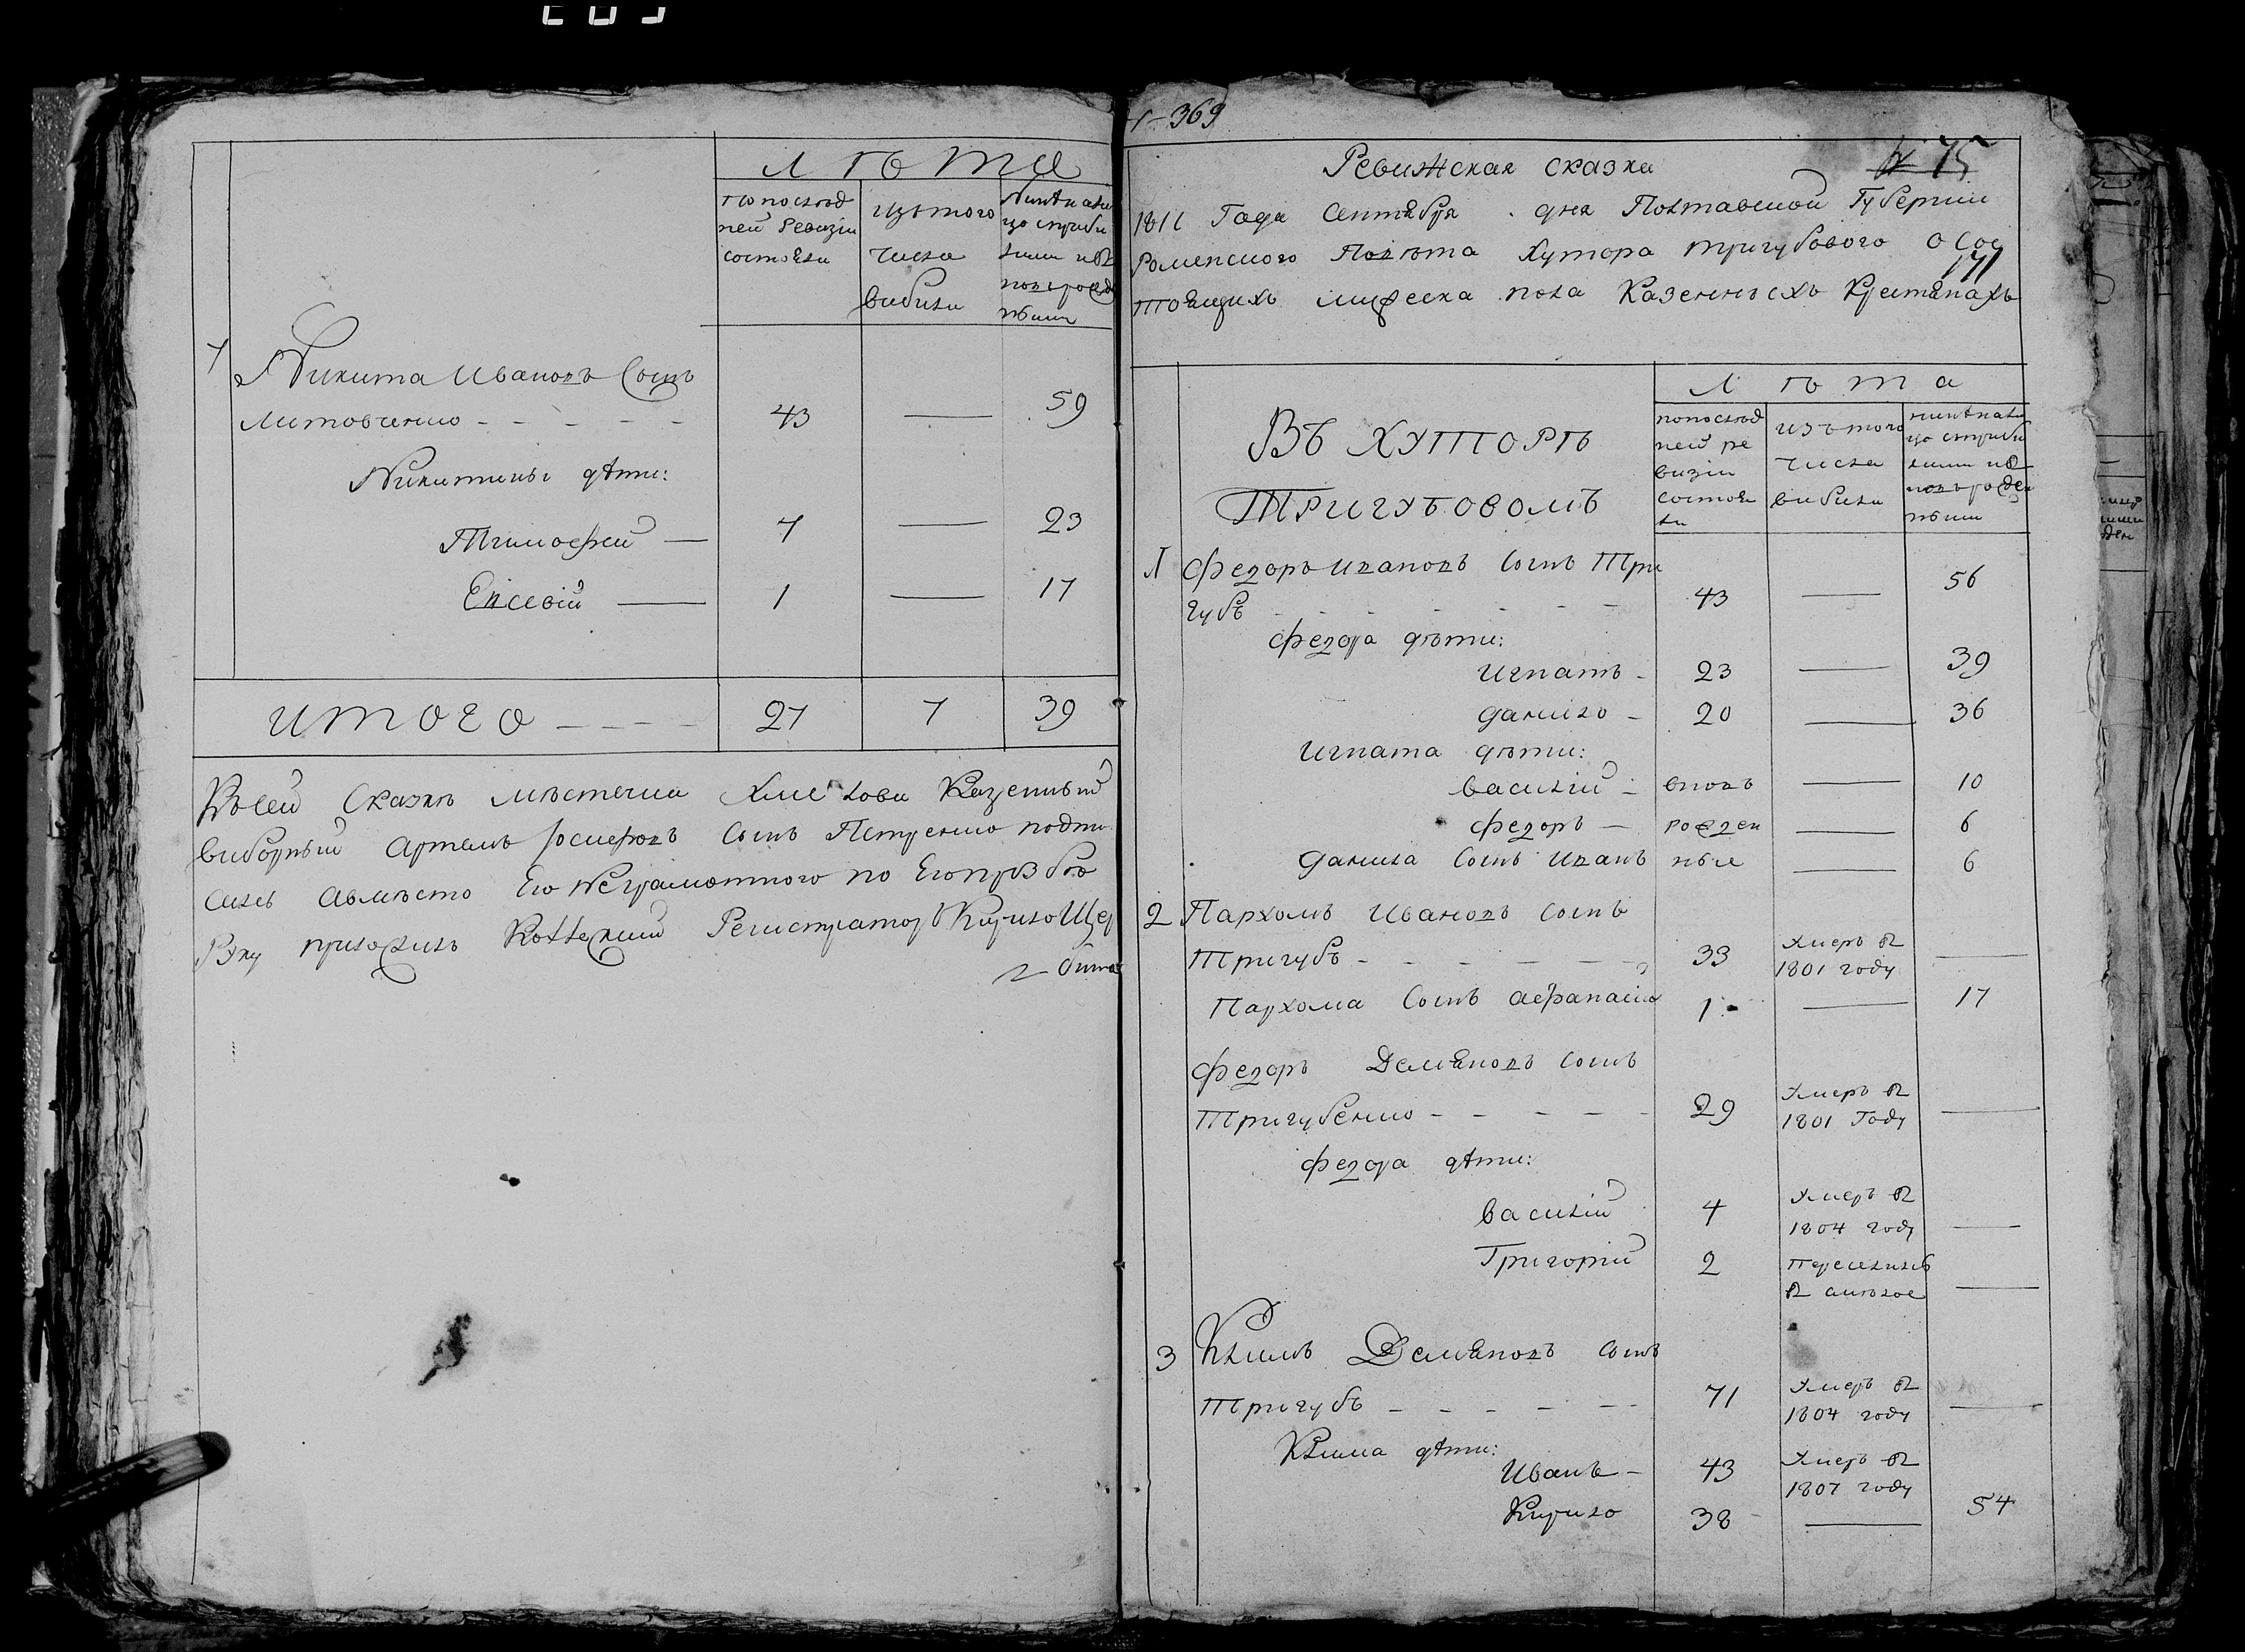 лѣта
попослѣд
ней Ревизіи
состояли
изътого
числа
вибили
Нинѣ налы
цо спрыбы
лими ивъ
новърожде
нъими
7
Никита Ивановъ Сынъ
Литовченко - - - - - 43 — 59
Никитины дѣти:
Тимофей — 7 — 23
Евсевій — 1 — 17
итого - - - - 27 7 39
Ксей Сказкѣ мѣстечка Хмелова Казенный
виборный Артемъ Іосифовъ Сынъ Петренко подпи
салсь авмѣсто Его Неграмотного по Егопрозбѣ
Руку приложилъ Коллежскій Регистраторъ Кирило Щер
бина
369
№ 75
Ревижская сказка
1811 Года Сентября дня Полтавской Губерніи
Роменского Повѣта Хутора Тригубового о Сос
тоящихъ мужеска пола Казенныхъ Крестянахъ
Лѣта
Въ хуторѣ
Тригубовомъ
попослѣд
ней ре
визіи
состоя
ли
изътого
числа
вибили
нинѣ налы
цо спрыбы
лими ивъ
новърожден
нъими
1 Федоръ Ивановъ Сынъ Три
губъ - - - - - - - 43 — 56
Федора дѣти:
Игнатъ - 23 — 39
Данило - 20 — 36
Игната дѣти:
Василій - вновъ — 10
Федоръ — рожден — 6
Данила Сынъ Иванъ ные — 6
2 Пархомъ Ивановъ Сынъ
Тригубъ - - - - - - 33 Умеръ в 1801 году —
Пархома Сынъ Афанасій 1 — 17
Федоръ Демяновъ Сынъ
Тригубенко - - - - - 29 Умеръ в 1801 Году —
Федора дѣти:
Василій 4 Умеръ в 1804 году —
Григорій 2 переселилсь в —
3 Климъ Демяновъ Сынъ
Тригубъ - - - - - - 71 Умеръ в 1804 году —
Клима дѣти:
Иванъ - 43 Умеръ в 1807 году
Кирило 38 — 54